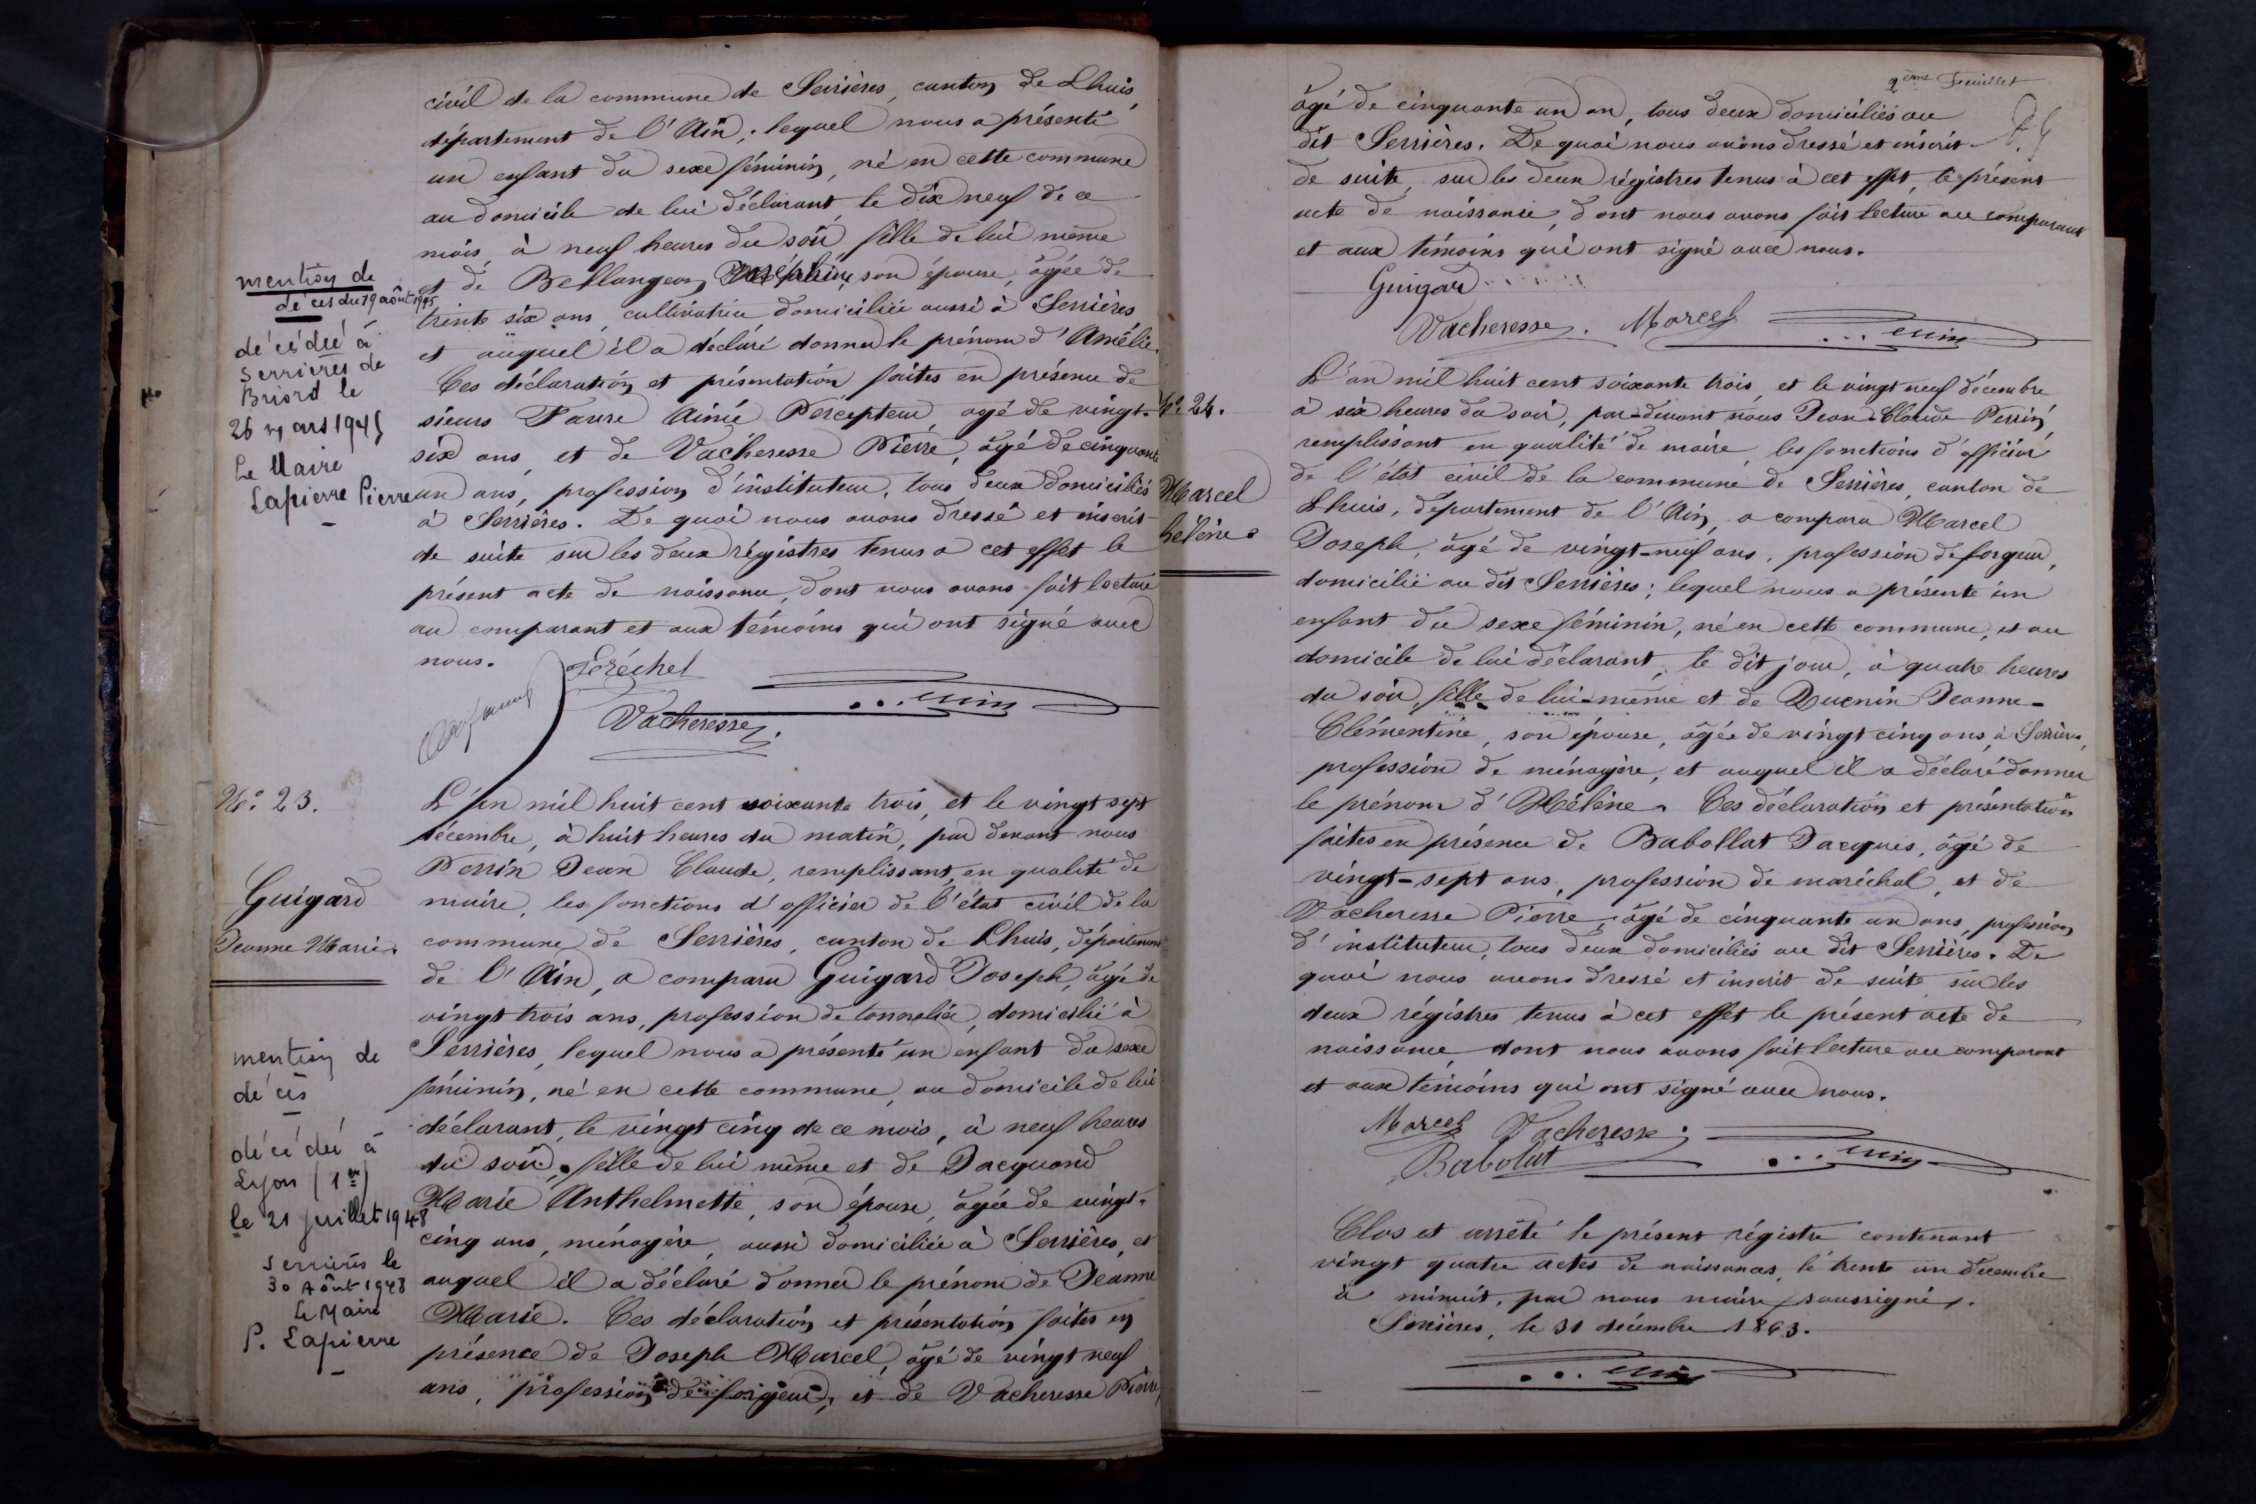 civil de la commune de Serrières, canton de Lhuis,
département de l'Ain, lequel nous a présenté
un enfant du sexe féminin, né en cette commune
au domicile de lui déclarant, le dix neuf de ce
mois, à neuf heures du soir, fille de lui même
et de Bellangeon Joséphine, son épouse, âgée de
trente six ans, cultivatrice domiciliée aussi à Serrières
et auquel il a déclaré donner le prénom d'Amélie.
Ces déclaration et présentation faites en présence de
sieurs Faure Aimé Percepteur, âgé de vingt-
six ans, et de Vacheresse Pierre, âgé de cinquante
un ans, profession d'instituteur, tous deux domiciliés
à Serrières. De quoi nous avons dressé et inscrit
de suite sur les deux régistres tenus à cet effet le
présent acte de naissance, dont nous avons fait lecture
au comparant et aux témoins qui ont signé avec
nous.
mention de
décès du 19 août 1945
décédée à
Serrières de
Briord le
26 mars 1945
Le Maire
Lapierre Pierre
Feréchet
Vacheresse
N° 23.
Guigard
Jeanne Marie.
L'an mil huit cent soixante trois, et le vingt sept
décembre, à huit heures du matin, par devant nous
Perrin Jean Claude, remplissant, en qualité de
maire, les fonctions d'officier de l'état civil de la
commune de Serrières, canton de Lhuis, département
de l'Ain, a comparu Guigard Joseph, âgé de
vingt trois ans, profession de tonnelier, domicilié à
Serrières, lequel nous a présenté un enfant du sexe
féminin, né en cette commune, au domicile de lui
déclarant, le vingt cinq de ce mois, à neuf heures
du soir, fille de lui même et de Jacquand
Marie Anthelmette, son épouse, âgée de vingt-
cinq ans, ménagère, aussi domiciliée à Serrières, et
auquel il a déclaré donner le prénom de Jeanne
Marie. Ces déclaration et présentation faites en
présence de Joseph Marcel, âgé de vingt neuf
ans, profession de forgeur, et de Vacheresse Pierre,
mention de
décès
décédée à
Lyon (1er)
le 21 juillet 1948
Serrières le
30 Août 1948
Le Maire
P. Lapierre
2ème Feuillet
âgé de cinquante un an, tous deux domiciliés au
dit Serrières. De quoi nous avons dressé et inscrit
de suite, sur les deux régistres tenus à cet effet, le présent
acte de naissance, dont nous avons fait lecture au comparant
et aux témoins qui ont signé avec nous.
Guigard
Vacheresse. Marcel ... Perrin
N° 24.
Marcel
Hélène.
L'an mil huit cent soixante trois, et le vingt neuf décembre
à six heures du soir, par-devant nous Jean Claude Perrin,
remplissant en qualité de maire, les fonctions d'officier
de l'état civil de la commune de Serrières, canton de
Lhuis, département de l'Ain, a comparu Marcel
Joseph, âgé de vingt-neuf ans, profession de forgeur,
domicilié au dit Serrières; lequel nous a présenté un
enfant du sexe féminin, né en cette commune, et au
domicile de lui déclarant, le dit jour, à quatre heures
du soir, fille de lui-même et de Quenin Jeanne-
Clémentine, son épouse, âgée de vingt cinq ans, à Serrières,
profession de ménagère, et auquel il a déclaré donner
le prénom d'Hélène. Ces déclaration et présentation
faites en présence de Babollat Jacques, âgé de
vingt-sept ans, profession de maréchal, et de
Vacheresse Pierre, âgé de cinquante un ans, profession
d'instituteur, tous deux domiciliés au dit Serrières. De
quoi nous avons dressé et inscrit de suite sur les
deux régistres tenus à cet effet le présent acte de
naissance dont nous avons fait lecture au comparant
et aux témoins qui ont signé avec nous.
Marcel Vacheresse.
Babolat ... Perrin
Clos et arrêté le présent régistre contenant
vingt quatre actes de naissances, le trente un décembre
à minuit, par nous maire soussigné.
Serrières, le 31 décembre 1863.
... Perrin